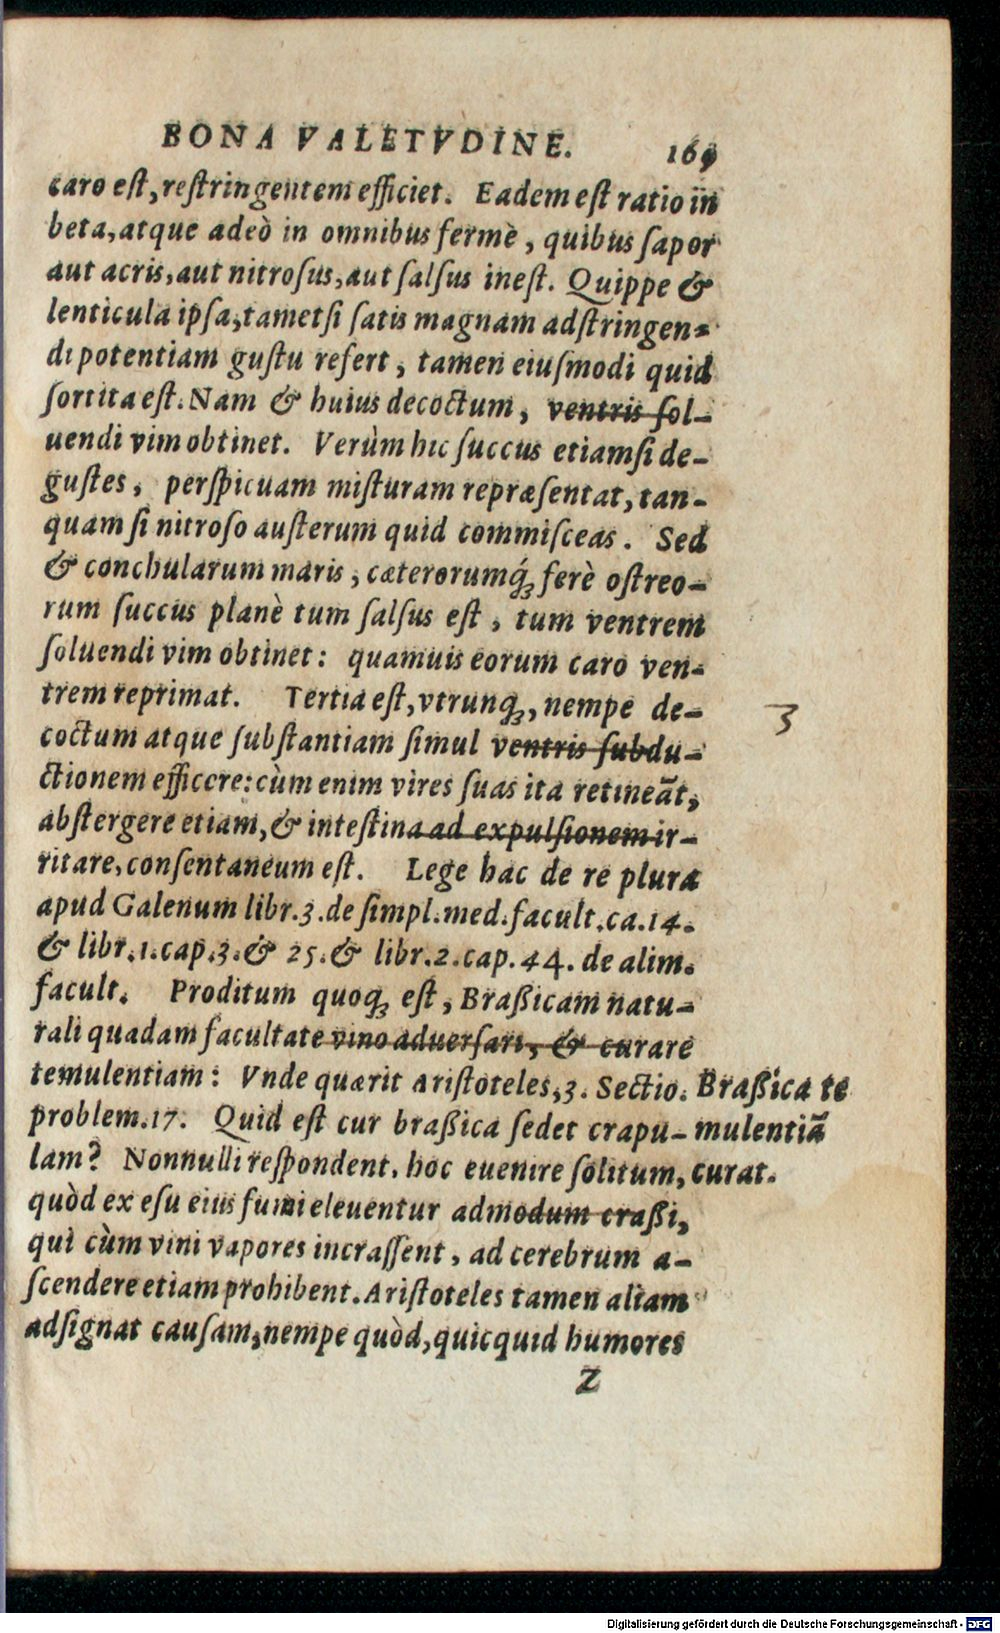 BONA VALETVDINE. 169
caro eſt, reſtringentem efficiet. Eadem eſt ratio in
beta, atque adeò in omnibus fermè, quibus ſapor
aut acris, aut nitroſus, aut ſalſus ineſt. Quippe &
lenticula ipſa, tametſi ſatis magnam adſtringen-
di potentiam guſtu refert, tamen eiuſmodi quid
ſortita eſt. Nam & huius decoctum, ventris ſol-
uendi vim obtinet. Verùm hic ſuccus etiamſi de-
guſtes, perſpicuam miſturam repræſentat, tan-
quam ſi nitroſo auſterum quid commiſceas. Sed
& conchularum maris, cæterorumq́ꝫ ferè oſtreo-
rum ſuccus planè tum ſalſus eſt, tum ventrem
ſoluendi vim obtinet: quamuis eorum caro ven-
trem reprimat. Tertia eſt, vtrunqꝫ, nempe de-
3
coctum atque ſubſtantiam ſimul ventris ſubdu-
ctionem efficere: cùm enim vires ſuas ita retineāt,
abſtergere etiam, & inteſtina ad expulſionem ir-
ritare, conſentaneum eſt. Lege hac de re plura
apud Galenum libr. 3. de ſimpl. med. facult. ca. 14.
& libr. 1. cap. 3. & 25. & libr. 2. cap. 44. de alim.
facult. Proditum quoqꝫ eſt, Braßicam natu-
rali quadam facultate vino aduerſari, & curare
temulentiam: Vnde quærit Ariſtoteles, 3. Sectio.
problem. 17. Quid eſt cur braßica ſedet crapu-
lam? Nonnulli reſpondent, hoc euenire ſolitum,
Braßica te
mulentiā
curat.
quòd ex eſu eius fumi eleuentur admodum craßi,
qui cùm vini vapores incraſſent, ad cerebrum a-
ſcendere etiam prohibent. Ariſtoteles tamen aliam
adſignat cauſam, nempe quòd, quicquid humores
Z
Digitalisierung gefördert durch die Deutsche Forschungsgemeinschaft - DFG